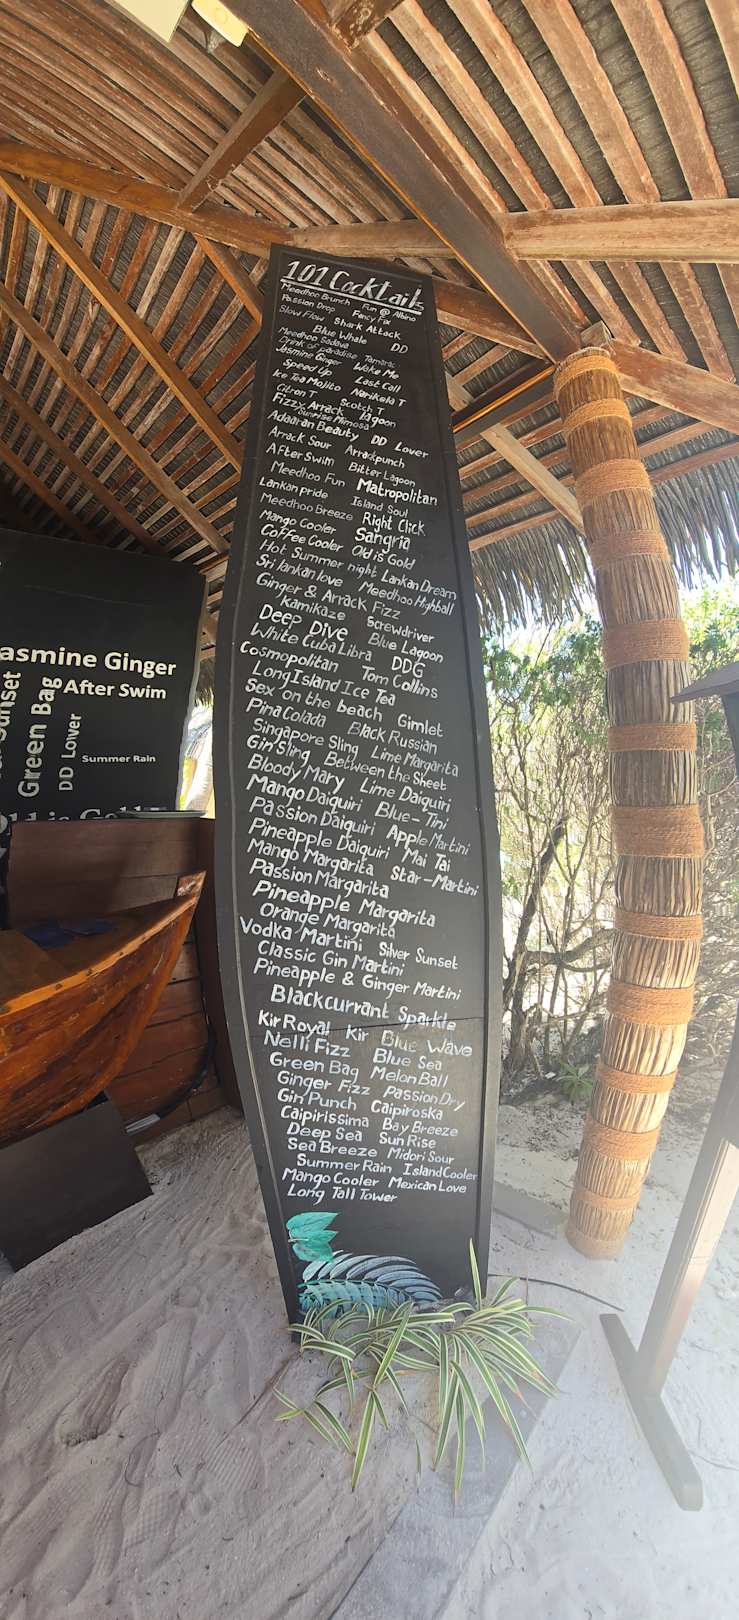 101 Cocktails
Meedhoo Brunch Fun @ Albino
Passion Drop Fancy Fix
Slow Flow Shark Attack
Blue Whale DD
Meedhoo Sadava
Drink of paradise Tamaric
Jasmine Ginger Wake Me
Speed Up Last Call
Ice Tea Mojito Narikela T
Citron T Scotch T
Fizzy Arrack Lagoon
Sunrise Mimosa
Adaaran Beauty DD Lover
Arrack Sour Arrackpunch
After Swim Bitter Lagoon
Meedhoo Fun Matropolitan
Lankan pride Island Soul
Meedhoo Breeze Right Click
Mango Cooler Sangria
Coffee Cooler Old is Gold
Hot Summer night Lankan Dream
Sri lankan love Meedhoo Highball
Ginger & Arrack Fizz
Kamikaze Screwdriver
Deep Dive Blue Lagoon
White Cuba Libra DDG
Cosmopolitan Tom Collins
Long Island Ice Tea
Sex on the beach Gimlet
Pina Colada Black Russian
Singapore Sling Lime Margarita
Gin Sling Between the Sheet
Bloody Mary Lime Daiquiri
Mango Daiquiri Blue-Tini
Passion Daiquiri Apple Martini
Pineapple Daiquiri Mai Tai
Mango Margarita Star-Martini
Passion Margarita
Pineapple Margarita
Orange Margarita
Vodka Martini Silver Sunset
Classic Gin Martini
Pineapple & Ginger Martini
Blackcurrant Sparkle
Kir Royal Kir Blue Wave
Nelli Fizz Blue Sea
Green Bag Melon Ball
Ginger Fizz Passion Dry
Gin Punch Caipiroska
Caipirissima Bay Breeze
Deep Sea Sun Rise
Sea Breeze Midori Sour
Summer Rain Island Cooler
Mango Cooler Mexican Love
Long Tall Tower
asmine Ginger
After Swim
Sunset
Green Bag
DD Lover
Summer Rain